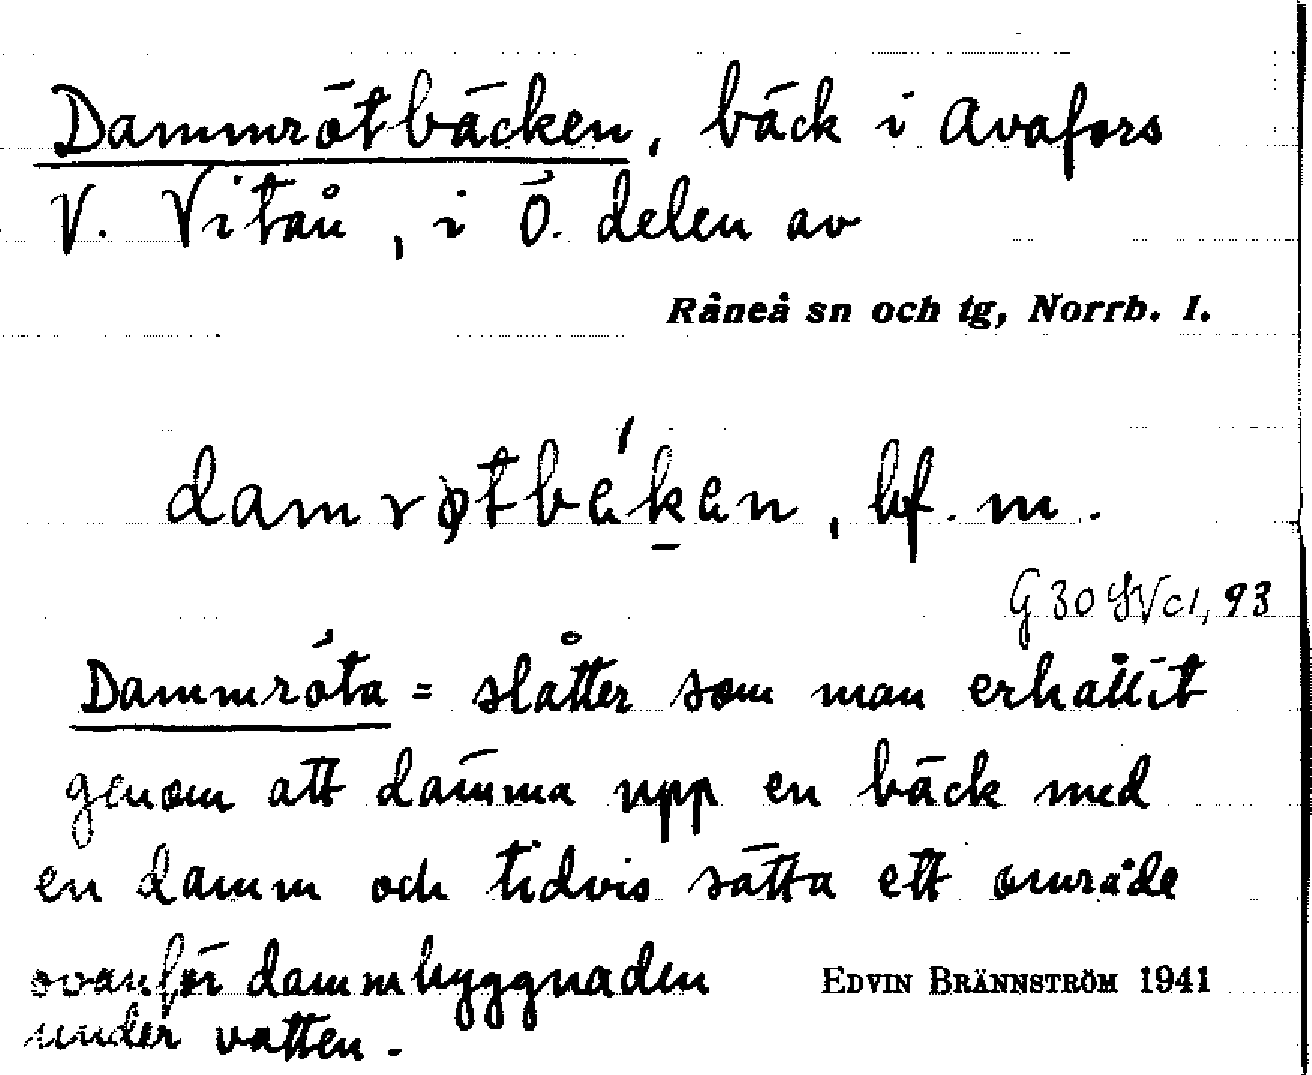 Dammrötbäcken, bäck i Avafors
V. Vitån, i Ö. delen av
Råneå sn och tg, Norrb. l.
damrøtbèken, bf. m.
G 30 SV c1, 93
Dammröta = slåtter som man erhållit
genom att dämma upp en bäck med
en damm och tidvis sätta ett område
ovanför dammbyggnaden
EDVIN BRÄNNSTRÖM 1941
under vatten.